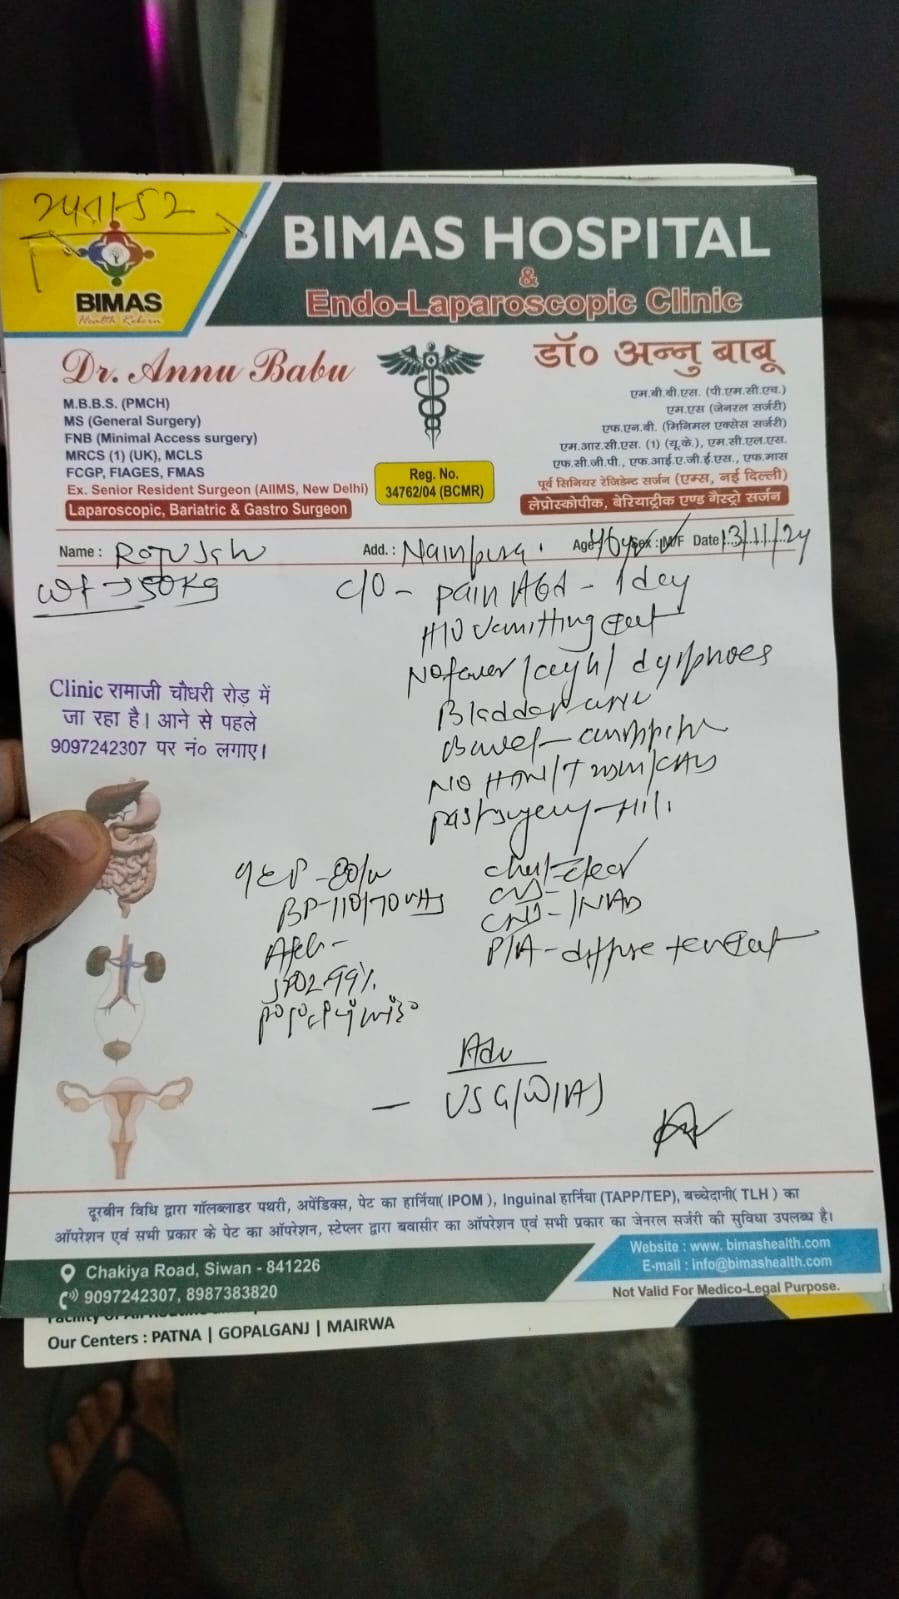 BIMAS HOSPITAL
&
Endo-Laparoscopic Clinic
BIMAS
Health Reborn
Dr. Annu Babu
M.B.B.S. (PMCH)
MS (General Surgery)
FNB (Minimal Access surgery)
MRCS (1) (UK), MCLS
FCGP, FIAGES, FMAS
Ex. Senior Resident Surgeon (AIIMS, New Delhi)
Laparoscopic, Bariatric & Gastro Surgeon
Reg. No.
34762/04 (BCMR)
डॉ० अन्नु बाबू
एम.बी.बी.एस. (पी.एम.सी.एच.)
एम.एस (जेनरल सर्जरी)
एफ.एन.बी. (मिनिमल एक्सेस सर्जरी)
एम.आर.सी.एस. (1) (यू.के.), एम.सी.एल.एस.
एफ.सी.जी.पी., एफ.आई.ए.जी.ई.एस., एफ.मास
पूर्व सिनियर रेजिडेन्ट सर्जन (एम्स, नई दिल्ली)
लेप्रोस्कोपीक, बेरियाट्रीक एण्ड गैस्ट्रो सर्जन
Name : Add. : Age Sex : M/F Date 13/11/24
Wt → 50 Kg
C/O - pain - 1 day
H/O vomitting
No fever /
Bladder
Bowel
No HTN/
past surgery - Nil
Clinic रामाजी चौधरी रोड़ में
जा रहा है। आने से पहले
9097242307 पर नं० लगाए।
BP - 110/70
SPO2 - 99%
chest - clear
CVS -
CNS - /NAD
P/A - diffuse
Adv
- USG (W/A)
दूरबीन विधि द्वारा गॉलब्लाडर पथरी, अपेंडिक्स, पेट का हार्निया( IPOM ), Inguinal हार्निया (TAPP/TEP), बच्चेदानी( TLH ) का
ऑपरेशन एवं सभी प्रकार के पेट का ऑपरेशन, स्टेप्लर द्वारा बवासीर का ऑपरेशन एवं सभी प्रकार का जेनरल सर्जरी की सुविधा उपलब्ध है।
Chakiya Road, Siwan - 841226
9097242307, 8987383820
Website : www. bimashealth.com
E-mail : info@bimashealth.com
Not Valid For Medico-Legal Purpose.
Our Centers : PATNA | GOPALGANJ | MAIRWA